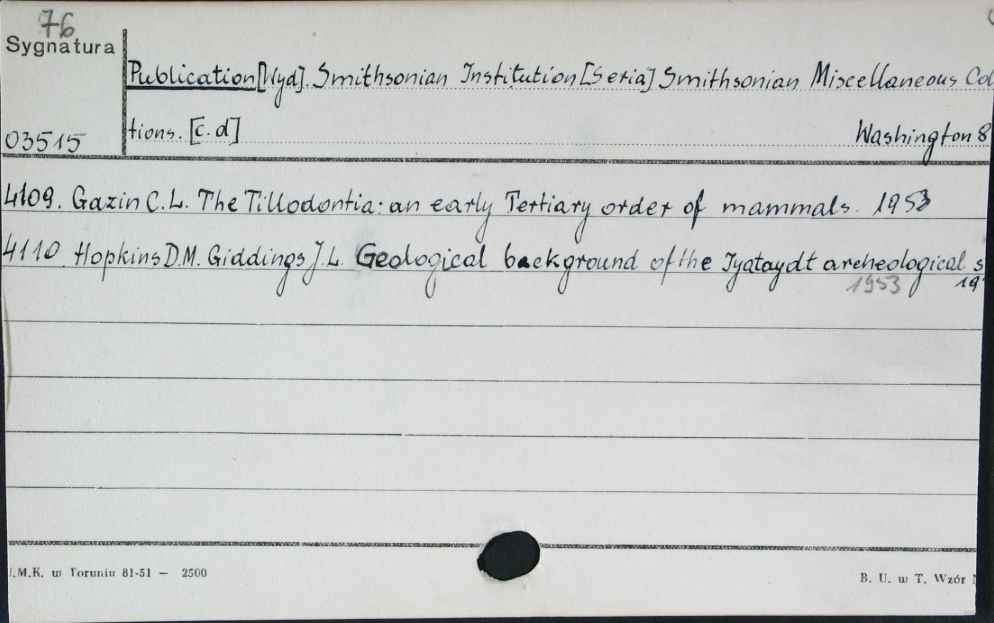 76
Sygnatura
Publication [Wyd]. Smithsonian Institution [Seria] Smithsonian Miscellaneous Col
03515 tions. [c.d] Washington 8
4109. Gazin C.L. The Tillodontia: an early Tertiary order of mammals. 1953
4110 Hopkins D.M. Giddings J.L. Geological background of the Iyataydt archeological s
1953 19
U.M.K. w Toruniu 81-51 — 2500 B. U. w T. Wzór